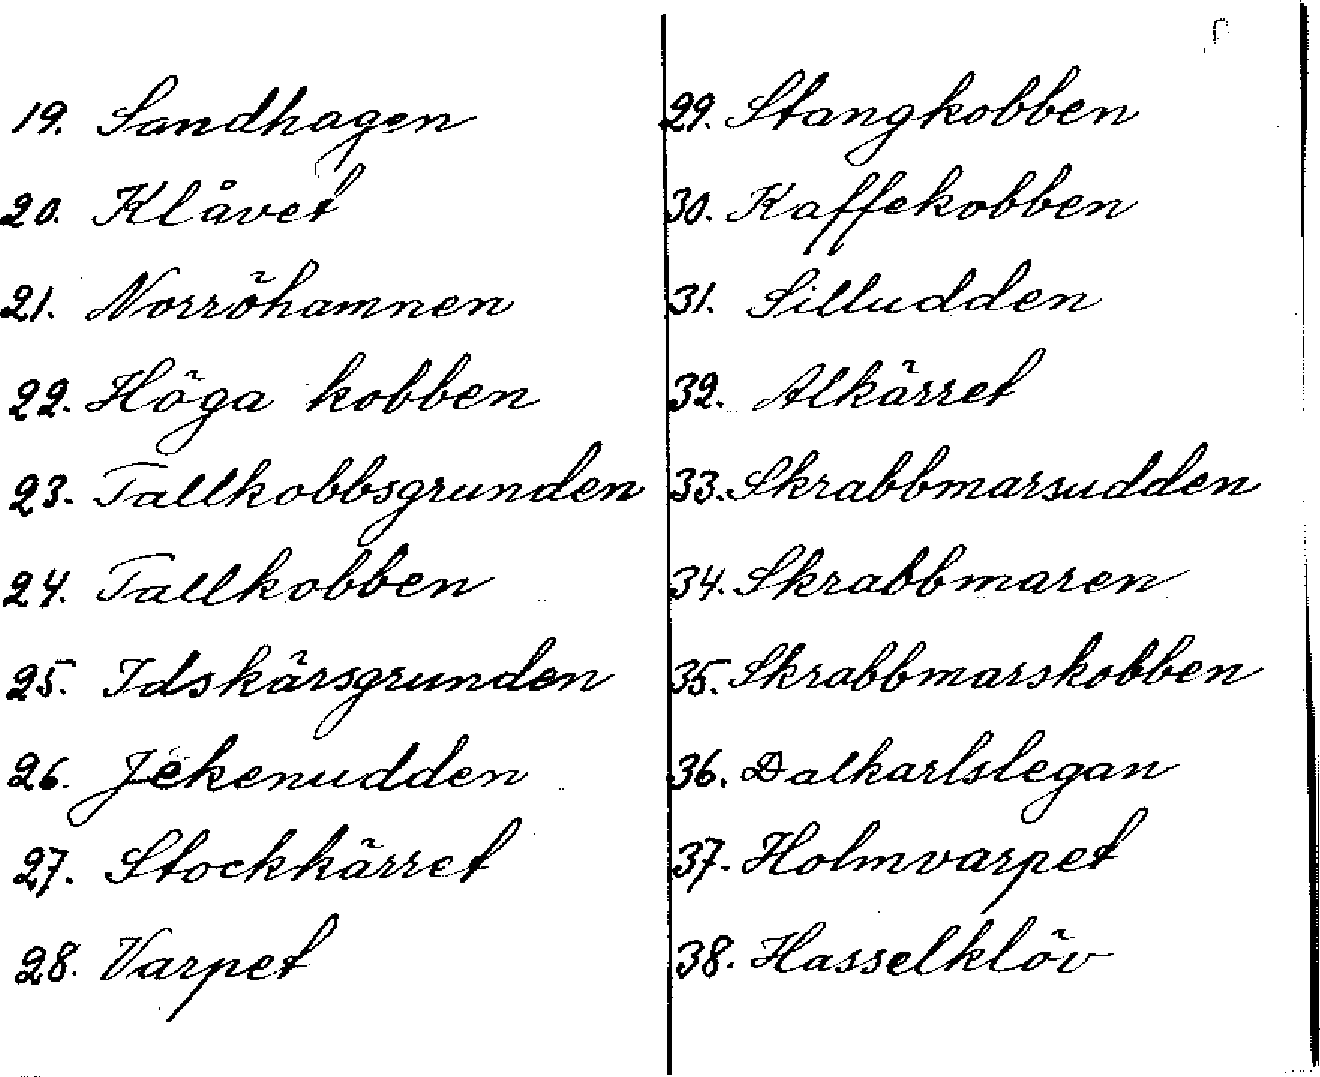 19. Sandhagen
20. Klåvet
21. Norröhamnen
22. Höga kobben
23. Tallkobbsgrunden
24. Tallkobben
25. Idskärsgrunden
26. Jekenudden
27. Stockkärret
28. Varpet
29. Stangkobben
30. Kaffekobben
31. Silludden
32. Alkärret
33. Skrabbmarsudden
34. Skrabbmaren
35. Skrabbmarskobben
36. Dalkarlslegan
37. Holmvarpet
38. Hasselklöv